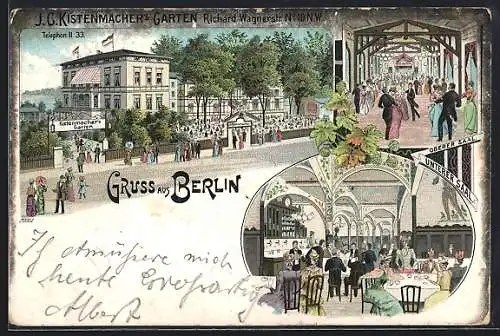 J.C. KISTENMACHER'S GARTEN Richard Wagnerstr. N° 10 N.W.
Telephon II 33.
Kistenmacher's
Garten
OBERER SAAL
UNTERER SAAL
GRUSS aus BERLIN
Ich amüsiere mich
heute Großartig
Albert